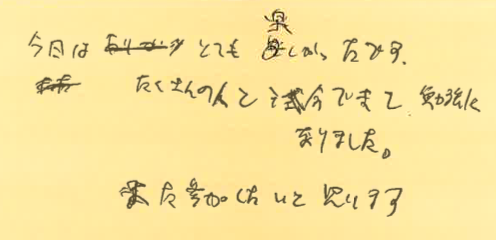 今日は とても 楽しかったです.
たくさんの人と試合できて 勉強に
なりました。
また参加したいと思います